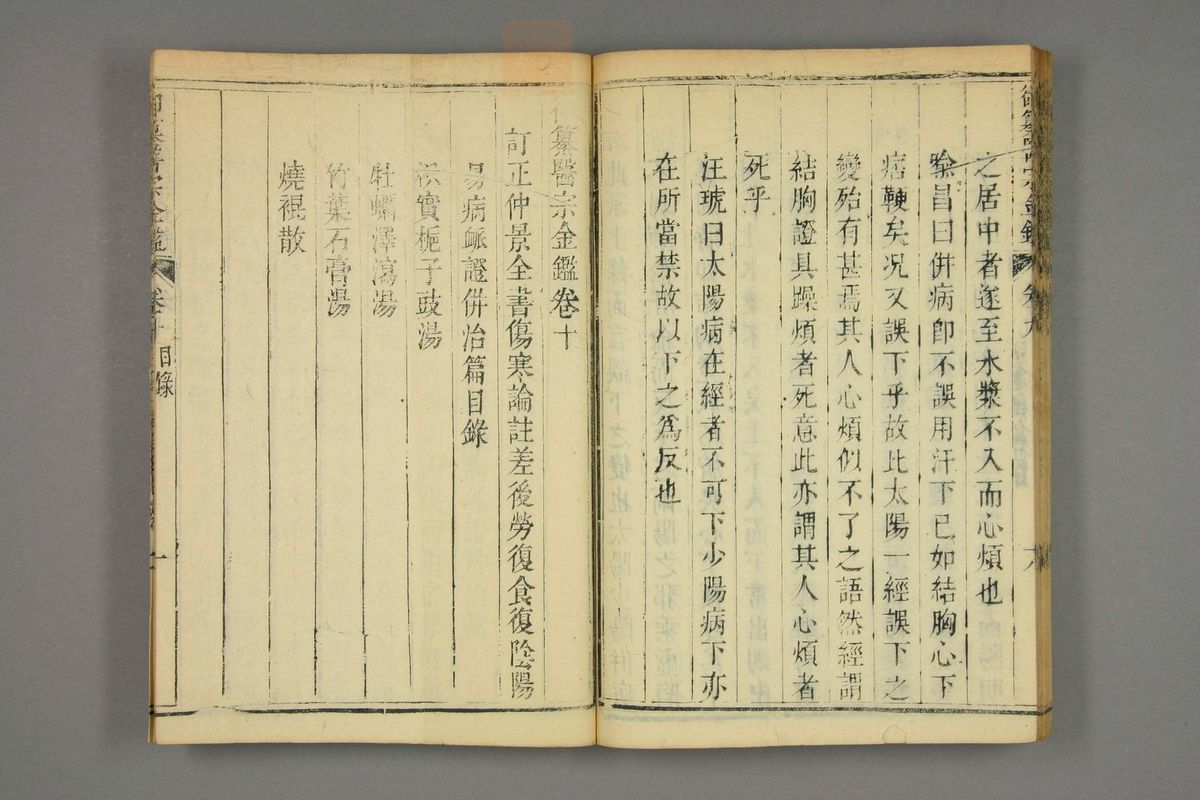 之居中者遂至水漿不入而心煩也
喻昌曰併病即不誤用汗下已如結胸心下
痞鞕矣况又誤下乎故比太陽一經誤下之
變殆有甚焉其人心煩似不了之語然經謂
結胸證具躁煩者死意此亦謂其人心煩者
死乎
汪琥曰太陽病在經者不可下少陽病下亦
在所當禁故以下之為反也
纂醫宗金鑑卷十
訂正仲景全書傷寒論註差後勞復食復陰陽
易病脈證併治篇目錄
枳實梔子豉湯
牡蠣澤瀉湯
竹葉石膏湯
燒裩散
卷十目錄